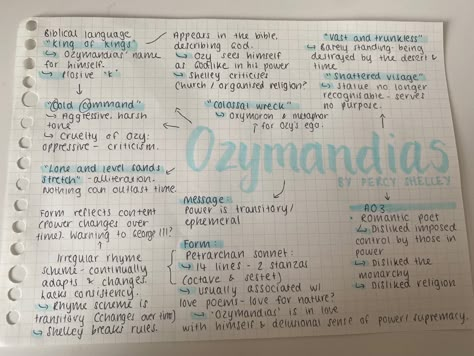 Biblical language
"King of Kings"
↳ Ozymandias' name
for himself.
↳ Plosive 'k'
Appears in the bible,
describing God.
↳ Ozy sees himself
as Godlike in his power
↳ Shelley criticises
Church / organised religion?
"Vast and trunkless"
↳ Barely standing - being
destroyed by the desert &
time
"Shattered visage"
↳ Statue no longer
recognisable - serves
no purpose.
"Cold Command"
↳ Aggressive, harsh
tone
↳ Cruelty of Ozy:
oppressive - criticism.
"Colossal wreck"
↳ Oxymoron & metaphor
for Ozy's ego.
Ozymandias
BY PERCY SHELLEY
"Lone and level sands
stretch" - alliteration.
Nothing can outlast time.
Message
Power is transitory/
ephemeral
Form reflects content
(power changes over
time). Warning to George III?
Irregular rhyme
scheme - continually
adapts & changes.
Lacks consistency.
↳ Rhyme scheme is
transitory (changes over time)
↳ Shelley breaks rules.
Form
Petrarchan sonnet:
↳ 14 lines - 2 stanzas
(octave & sestet)
↳ usually associated w/
love poems - love for nature?
↳ 'Ozymandias' is in love
with himself & delusional sense of power/supremacy.
AO3
• Romantic poet
↳ Disliked imposed
control by those in
power
↳ Disliked the
monarchy
↳ Disliked religion